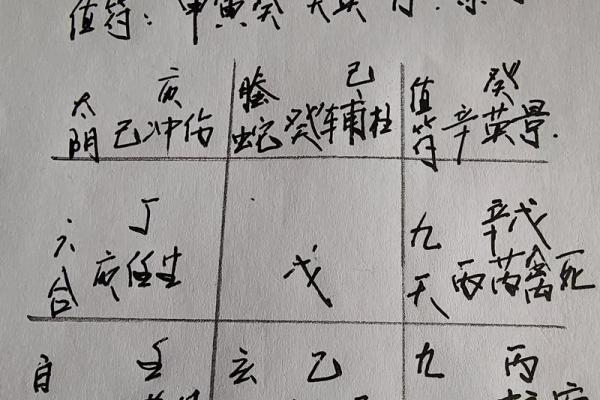 值符：甲寅癸 天英
太阴 庚
己冲伤
螣蛇 己
癸辅杜
值符 癸
辛英景.
六合 丁
庚任生
戊
九天 辛戊
丙芮禽死
白 壬
玄 乙
九 丙